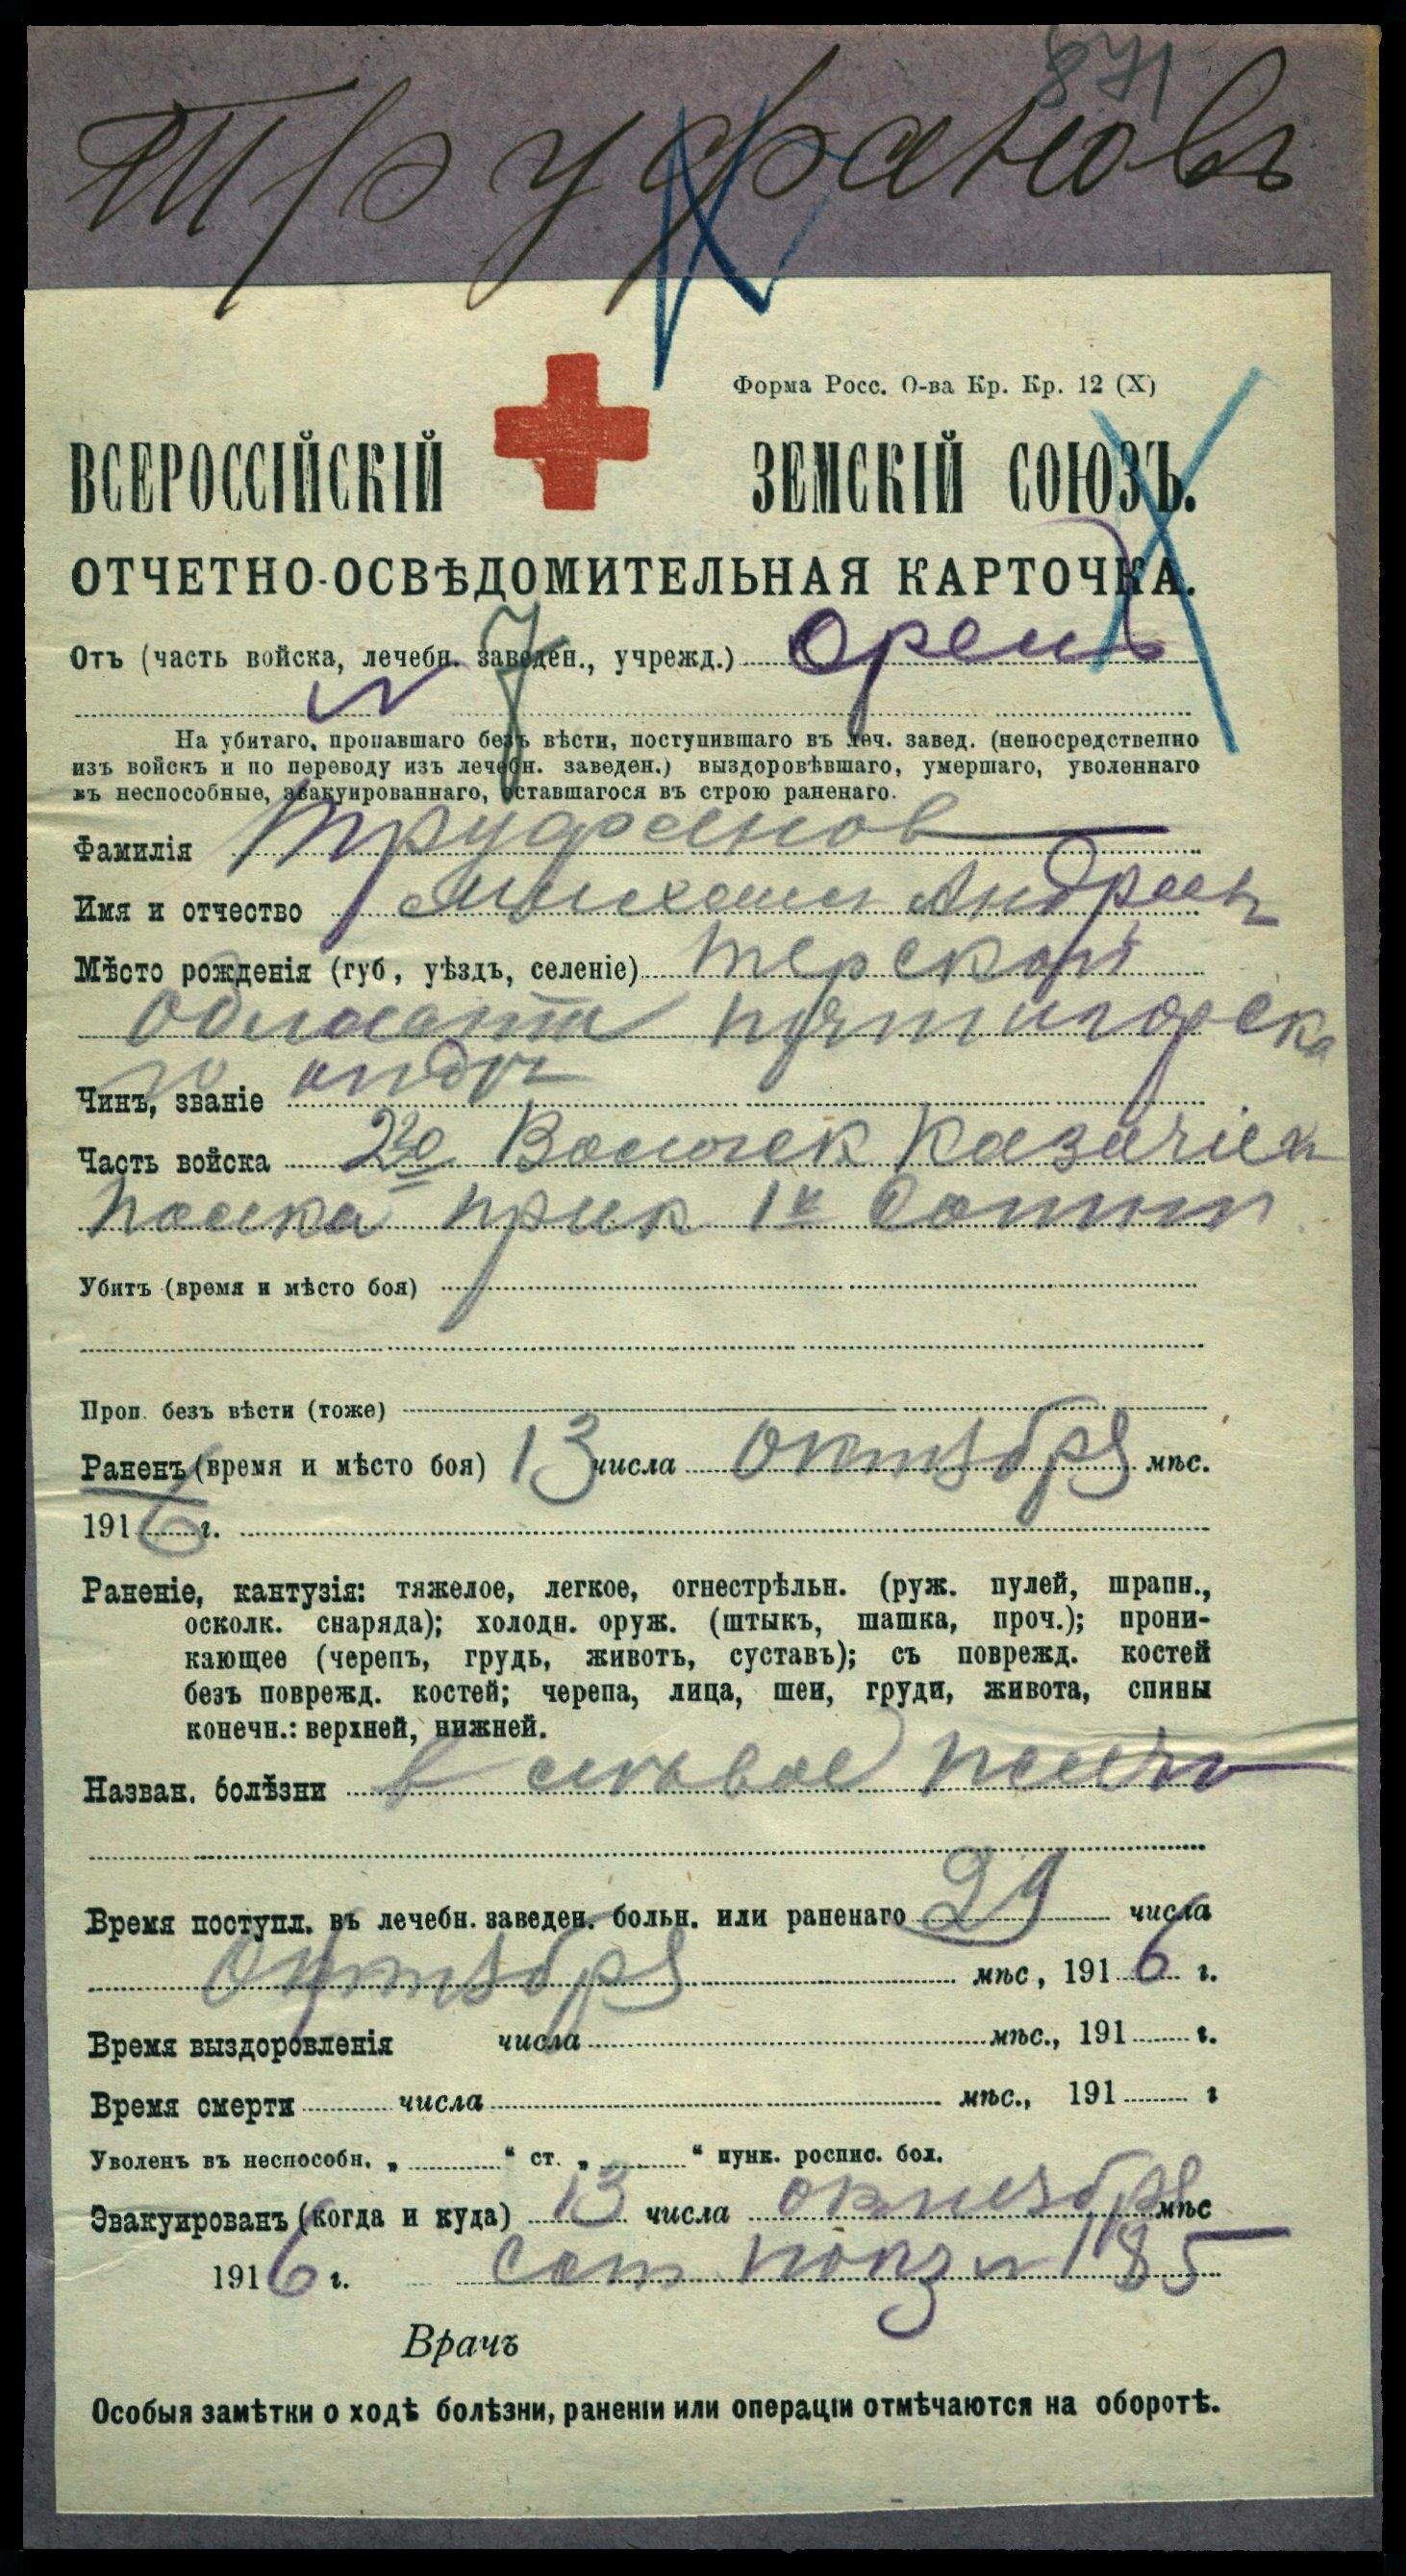 871
Труфановъ
Форма Росс. О-ва Кр. Кр. 12 (X)
ВСЕРОССІЙСКІЙ ЗЕМСКІЙ СОЮЗЪ.
ОТЧЕТНО-ОСВѢДОМИТЕЛЬНАЯ КАРТОЧКА.
Отъ (часть войска, лечебн. заведен., учрежд.) Орелъ
На убитаго, пропавшаго безъ вѣсти, поступившаго въ леч. завед. (непосредственно
изъ войскъ и по переводу изъ лечебн. заведен.) выздоровѣвшаго, умершаго, уволеннаго
въ неспособные, эвакуированнаго, оставшагося въ строю раненаго.
Фамилія Труфанов
Имя и отчество Михаил Андреев
Мѣсто рожденія (губ, уѣздъ, селеніе) Терской
Области Пятигорска
го отдѣ
Чинъ, званіе
Часть войска 2го Волгск Казачіек
Полка прик 1й Сотни
Убитъ (время и мѣсто боя)
Проп. безъ вѣсти (тоже)
Раненъ (время и мѣсто боя) 13 числа октября мѣс.
1916 г.
Раненіе, кантузія: тяжелое, легкое, огнестрѣльн. (руж. пулей, шрапн.,
осколк. снаряда); холодн. оруж. (штыкъ, шашка, проч.); прони-
кающее (черепъ, грудь, животь, суставъ); съ поврежд. костей
безъ поврежд. костей; черепа, лица, шеи, груди, живота, спины
конечн.: верхней, нижней.
Назван. болѣзни в левое плечо
Время поступл. въ лечебн. заведен. больн. или раненаго 29 числа
октября мѣс, 1916 г.
Время выздоровленія числа мѣс., 191 г.
Время смерти числа мѣс., 191 г
Уволенъ въ неспособн. „ “ ст. „ “ пунк. роспис. бол.
Эвакуированъ (когда и куда) 13 числа октября мѣс
1916 г. Сан поѣз N 185
Врачъ
Особыя замѣтки о ходѣ болѣзни, раненіи или операціи отмѣчаются на оборотѣ.